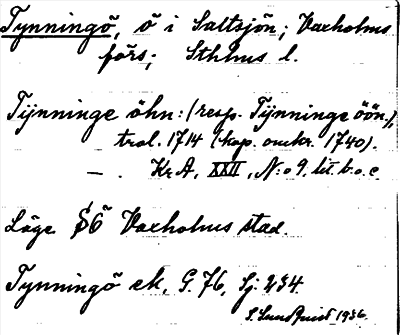 Tynningö, ö i Saltsjön; Vaxholms
förs; Sthlms l.
Tijnninge öhn: (resp. Tijnninge öön.),
trol. 1714 (kop. omkr. 1740).
— . Kr A, XXII, N:o 9, lit. b. o. c
Läge SÖ Vaxholms stad.
Tynningö ek, G. 76, Sj. 234.
S. Sundquist 1936.